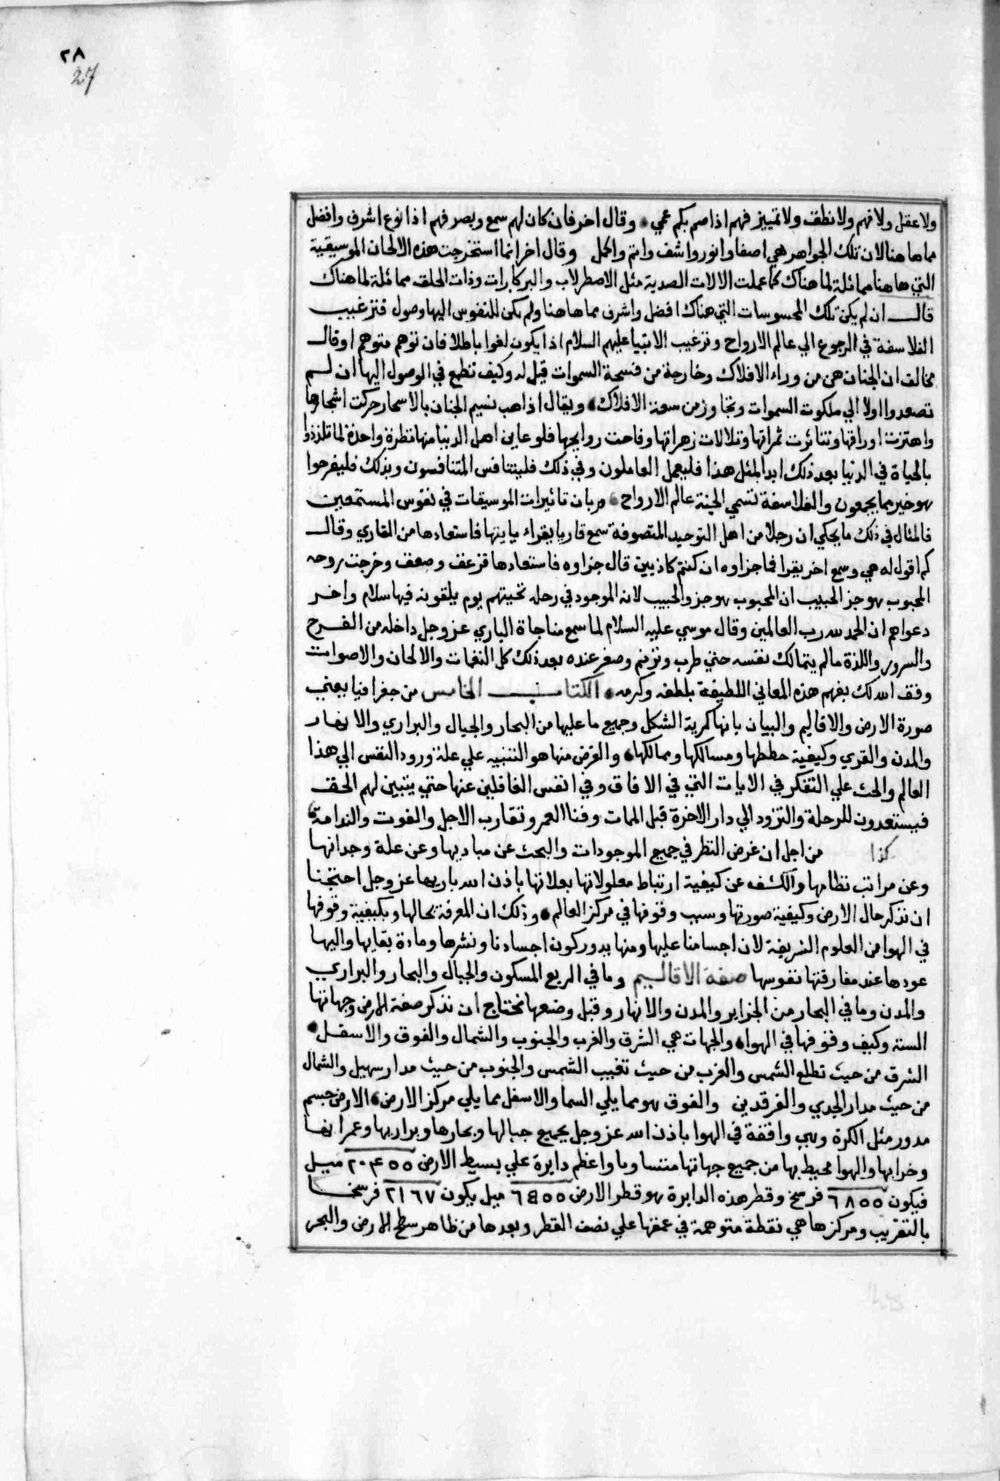 ٢٨
27
ولا عقل ولا فهم ولا نطق ولا تمييز فهم اذا صم بكم عمي وقال اخر فان كان لهم سمع وبصر فهم اذا نوع اشرف وافضل
مما هاهنا لان تلك الجواهر هي اصفا وانور واشف واتم واكمل وقال اخر انما استخرجت هذه الالحان الموسيقية
التي هاهنا مماثلة لما هناك كما عملت الالات الصدية مثل الاصطرلاب والبركارات وذات الحلق مماثلة لما هناك
قال ان لم يكن تلك المحسوسات التي هناك افضل واشرف مما هاهنا ولم يكن للنفوس اليها وصول فترغيب
الفلاسفة في الرجوع الي عالم الارواح وترغيب الانبيا عليهم السلام اذا يكون لغوا باطلا فان توهم متوهم او قال
مخالف ان الجنان هن من وراء الافلاك وخارجة من فسحة السموات قيل له وكيف تطمع في الوصول اليها ان لم
تصعدوا اولا الي ملكوت السموات وتجاوز من سعة الافلاك ويقال اذا هب نسيم الجنان بالاسحار حركت اشجارها
واهتزت اوراقها وتناثرت ثمراتها وتلالات زهراتها وفاحت روايحها فلو عاين اهل الدنيا منها نظرة واحدة لما تلذذوا
بالحياة في الدنيا بعد ذلك ابدا لمثل هذا فليعمل العاملون وفي ذلك فليتنافس المتنافسون وبذلك فليفرحوا
هو خير مما يجمعون والفلاسفة تسمي الجنة عالم الارواح وبيان تاثيرات الموسيقات في نفوس المستمعين
فالمثال في ذلك ما يحكي ان رجلا من اهل التوحيد المتصوفة سمع قاريا يقراء يا يتها فاستعادها من القاري وقال
كم اقول له هي وسمع اخر يقرا فما جزاوه ان كنتم كاذبين قال جزاوه فاستعادها فزعق وصعق وخرجت روحه
المحبوب هو جز الحبيب ان المحبوب هو جز والحبيب لانه الموجود في رحله تحيتهم يوم يلقونه فيها سلام واخر
دعواهم ان الحمد لله رب العالمين وقال موسي عليه السلام لما سمع مناجاة الباري عز وجل داخله من الفرح
والسرور واللذة ما لم يتمالك نفسه حتي طرب وترنم وصغر عنده بعد ذلك كل النغمات والالحان والاصوات
وفق الله لك بفهم هذه المعاني اللطيفة بلطفه وكرمه الكتاب الخامس من جغرافيا يعني
صورة الارض والاقاليم والبيان بانها كرية الشكل وجميع ما عليها من البحار والجبال والبراري والانهار
والمدن والقري وكيفية خططها ومسالكها وممالكها والغرض منها هو التنبيه علي علة ورود النفس الي هذا
العالم والحث علي التفكر في الايات التي في الافاق وفي انفس الغافلين عنها حتي يتبين لهم الحق
فيستعدون للرحلة والتزود الي دار الاخرة قبل الممات وفنا العمر وتقارب الاجل والفوت والندامة
كذا من اجل ان غرض النظر في جميع الموجودات والبحث عن مباديها وعن علة وجدانها
وعن مراتب نظامها والكشف عن كيفية ارتباط معلولاتها بعلاتها باذن الله باريها عز وجل احتجنا
ان نذكر حال الارض وكيفية صورتها وسبب وقوفها في مركز العالم وذلك ان المعرفة بحالها وبكيفية وقوفها
في الهوا من العلوم الشريفة لان اجسامنا عليها ومنها بدو ركون اجسادنا ونشرها ومادة بقايها واليها
عودها عند مفارقتها نفوسها صفة الاقاليم وما في الربع المسكون والجبال والبحار والبراري
والمدن وما في البحار من الجزاير والمدن والانهار وقبل وضعها نحتاج ان نذكر صفة الارض وجهاتها
الستة وكيف وقوفها في الهواء والجهات هي الشرق والغرب والجنوب والشمال والفوق والاسفل
الشرق من حيث تطلع الشمس والغرب من حيث تغيب الشمس والجنوب من حيث مدار سهيل والشمال
من حيث مدار الجدي والفرقدين والفوق هو مما يلي السما والاسفل مما يلي مركز الارض الارض جسم
مدور مثل الكرة وهي واقفة في الهوا باذن الله عز وجل بجميع جبالها وبحارها وبراريها وعمرانها
وخرابها والهوا محيط بها من جميع جهاتها متساويا واعظم دايرة علي بسيط الارض ٢٠٤٥٥ ميل
فيكون ٦٨٥٥ فرسخ وقطر هذه الدايرة هو قطر الارض ٦٥٥٥ ميل يكون ٢١٦٧ فرسخا
بالتقريب ومركزها هي نقطة متوهمة في عمقها علي نصف القطر وبعدها من ظاهر سطح الارض والبحر